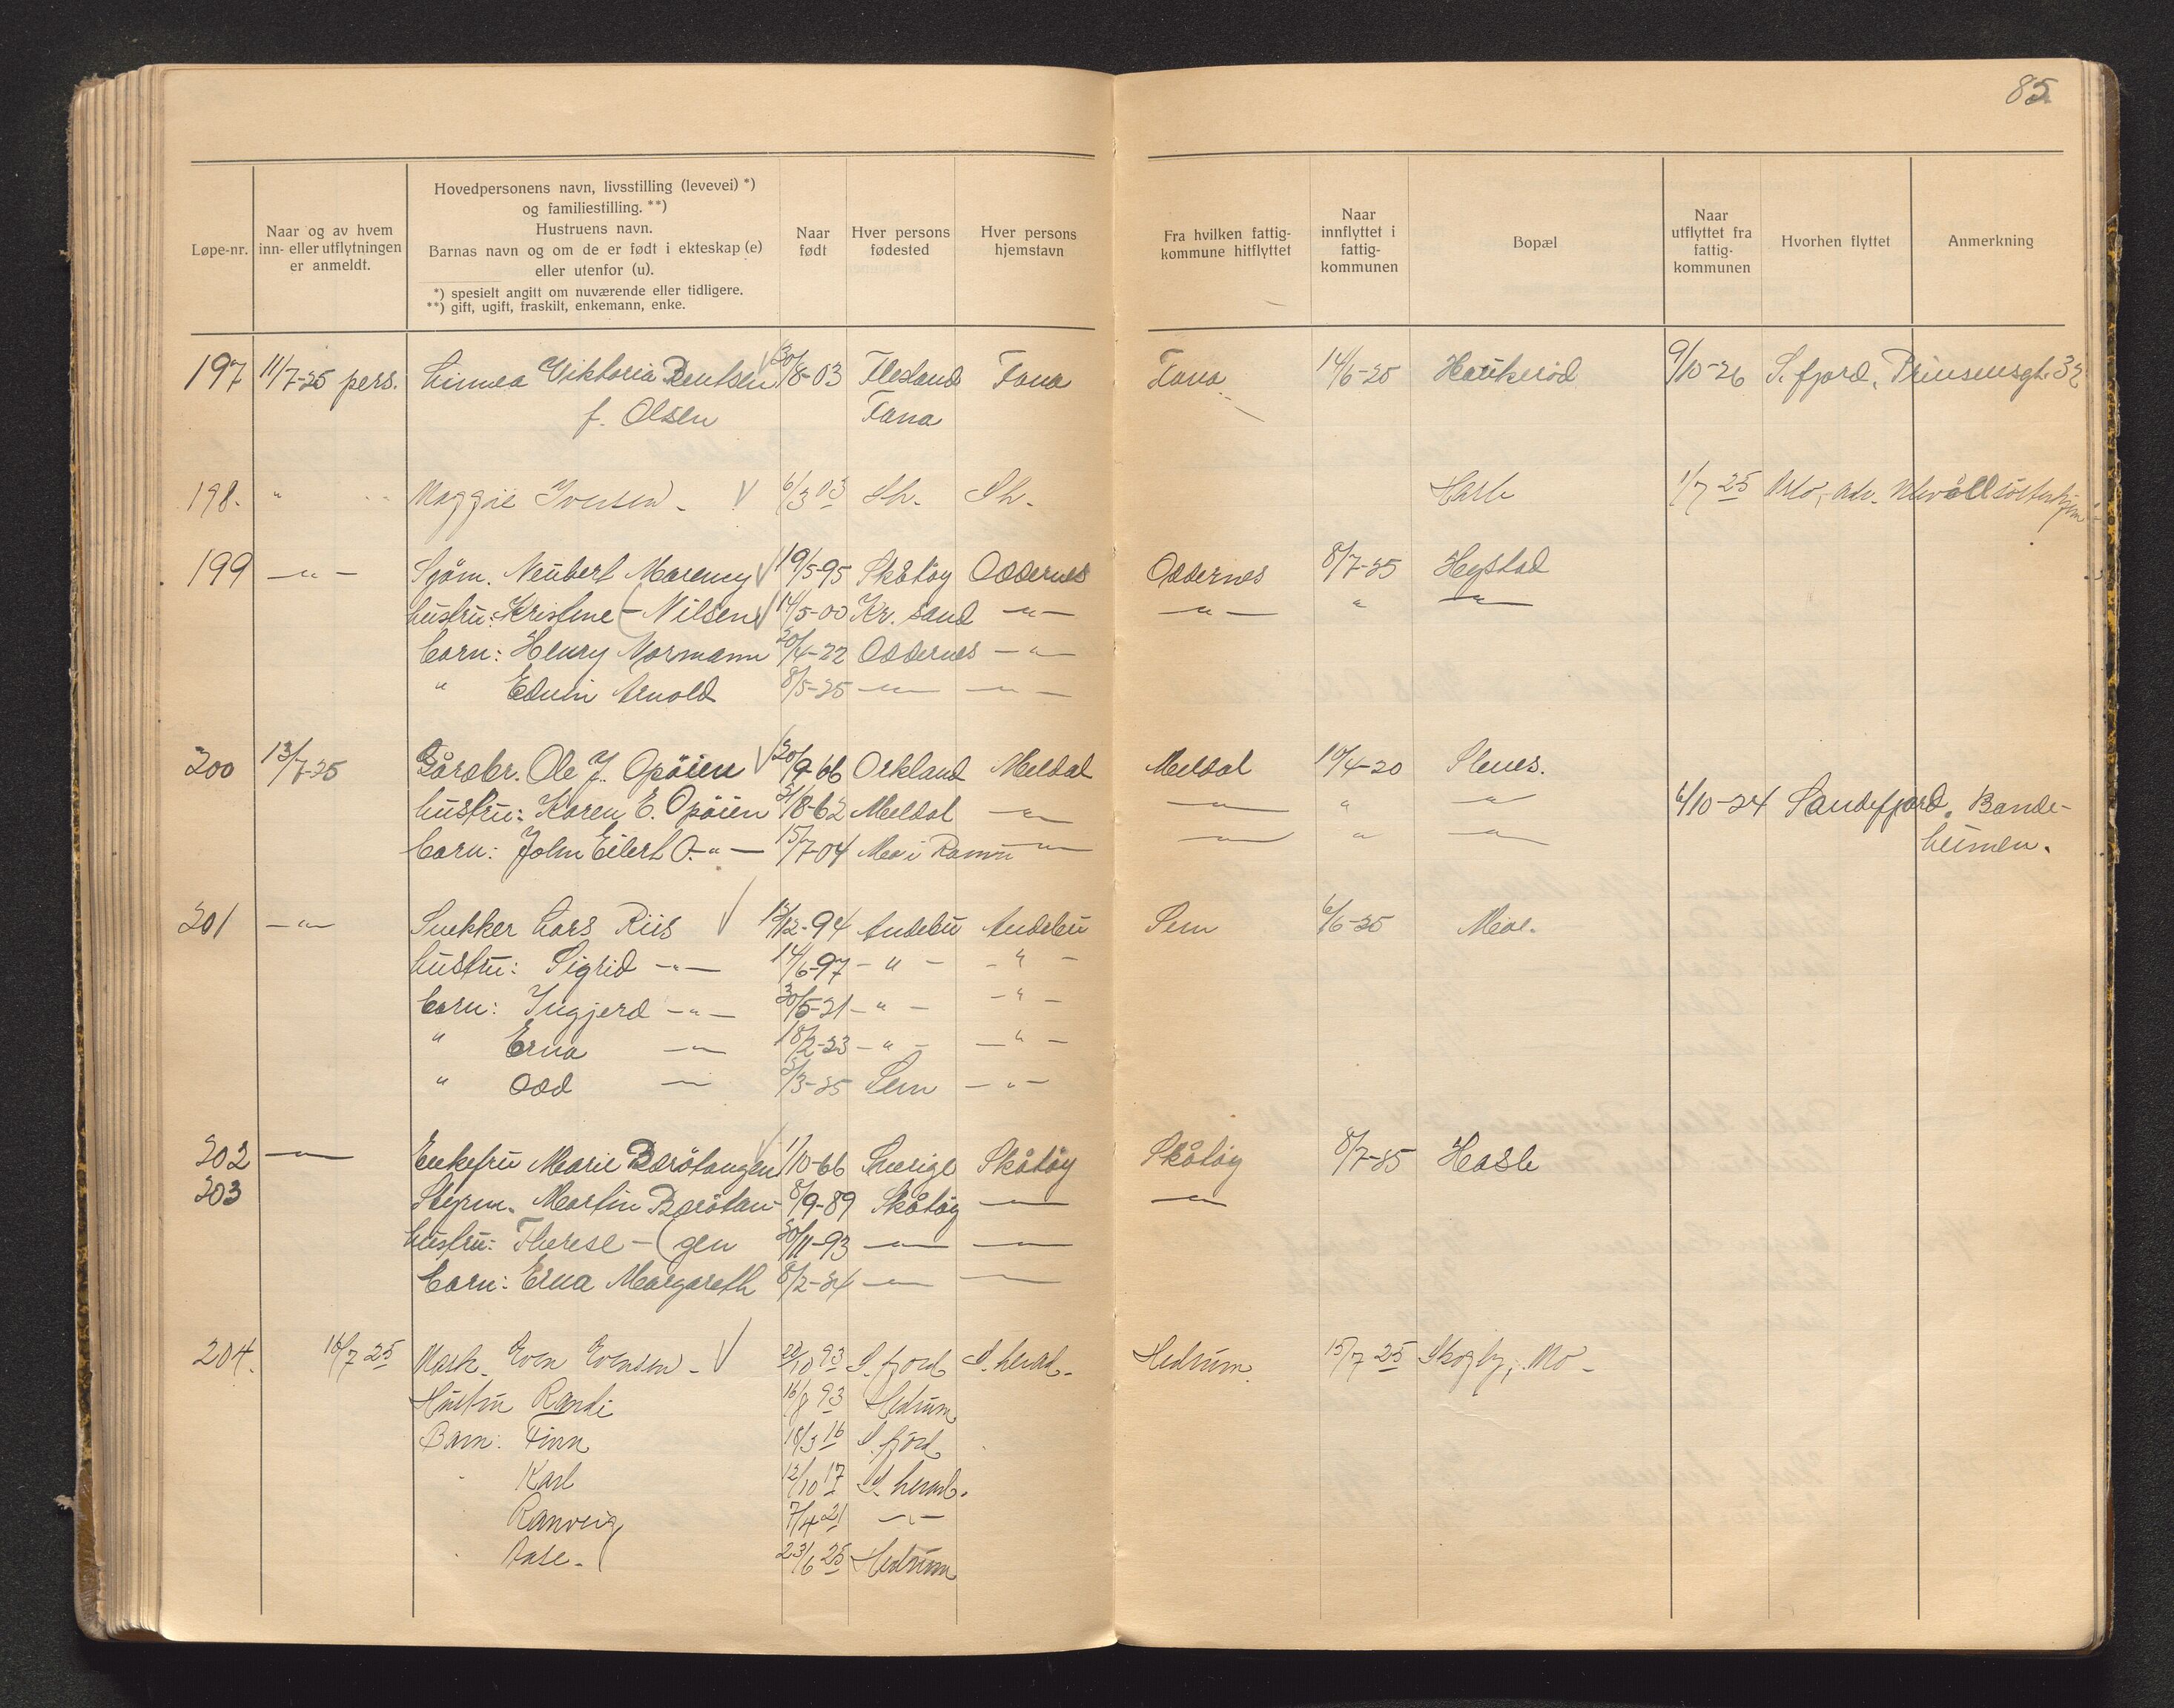 85.
Løpe-nr.
Naar og av hvem
inn- eller utflytningen
er anmeldt.
Hovedpersonens navn, livsstilling (levevei) *)
og familiestilling. **)
Hustruens navn.
Barnas navn og om de er født i ekteskap (e)
eller utenfor (u).
*) spesielt angitt om nuværende eller tidligere.
**) gift, ugift, fraskilt, enkemann, enke.
Naar
født
Hver persons
fødested
Hver persons
hjemstavn
Fra hvilken fattig-
kommune hitflyttet
Naar
innflyttet i
fattig-
kommunen
Bopæl
Naar
utflyttet fra
fattig-
kommunen
Hvorhen flyttet
Anmerkning
197 11/7-25 pers. Linnea Viktoria Bentsen 30/8-03 Flesland Fana Fana 14/6-25 Haukerød 9/10-26 S.fjord, Prinsensgt. 32
f. Olsen Fana
198. " " Maggie Iversen - 6/3 03 Sh. Sh. Hasle 1/7 25
199 —"— Sjøm. Neubert Marency 19/5-95 Skåtøy Oddernes Oddernes 8/7-25 Hystad
hustru: Kristine (- Nilsen 14/5-00 Kr. sand —"— —"— " —"—
barn: Henry Normann 20/4-22 Oddernes —"—
" Edvin Arnold 8/5-25 —"— —"—
200 13/7-25 Gårdbr. Ole J. Opöien 20/9-66 Orkland Meldal Meldal 10/4-20 Slenes.
hustru: Karen E. Opöien 31/8-62 Meldal —"— —"— " —"— 6/10-24 Sandefjord. Bonde-
barn: John Eilert O. —"— 15/7-04 Mo i Rana —"— —"— " —"— heimen.
201 —"— Snekker Lars Riis 13/12-94 Andebu Andebu Sem 6/6-25 Moe.
hustru: Sigrid —"— 14/6-97 —"— —"—
barn: Ingjerd —"— 30/5-21 —"— —"—
" Erna —"— 18/2-23 —"— —"—
" Odd —"— 3/3-25 Sem —"—
202 —"— Enkefru Marie Barötangen 1/10-66 Sverige Skåtöy Skåtöy 8/7-25 Hasle
203 Styrm. Martin Barötan- 8/9-89 Skåtöy —"— —"—
hustru: Therese - (gen 30/11-93 —"— —"—
barn: Erna Margareth 8/2-24 —"— —"—
204. 16/7 25 Mask. Even Evensen - 22/10 93 S.fjord S. herad. Hedrum 15/7 25 Skogly, Mo -
Hustru Randi 16/8 93 Hedrum
Barn: Finn 18/3 16 S. fjord
" Karl 12/10 17 S. herad.
Ranveig 7/4 21 —"—
" Aase - 23/6 25 Hedrum